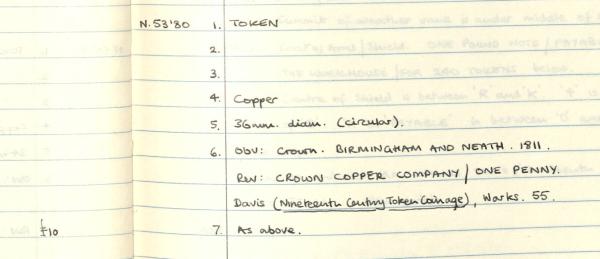 N.53'80 1. TOKEN
2.
3.
4. Copper
5. 36mm. diam. (circular).
6. Obv: Crown. BIRMINGHAM AND NEATH. 1811.
Rev: CROWN COPPER COMPANY / ONE PENNY.
Davis (Nineteenth Century Token Coinage), Warks. 55.
£10 7. As above.